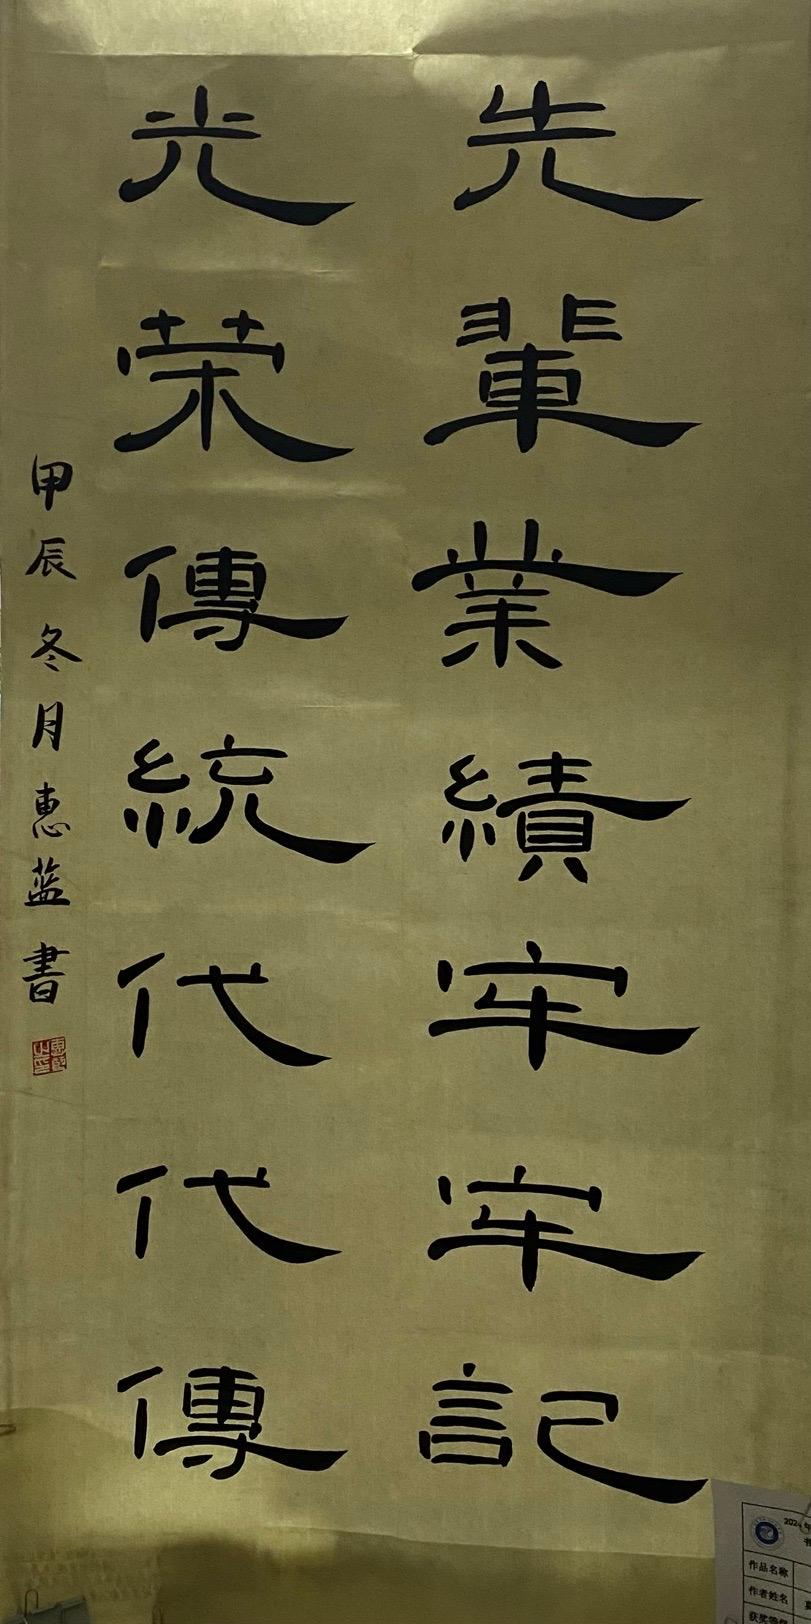 先輩業績牢牢記
光荣傳統代代傳
甲辰冬月惠蓝書
2024
作品名称
作者姓名